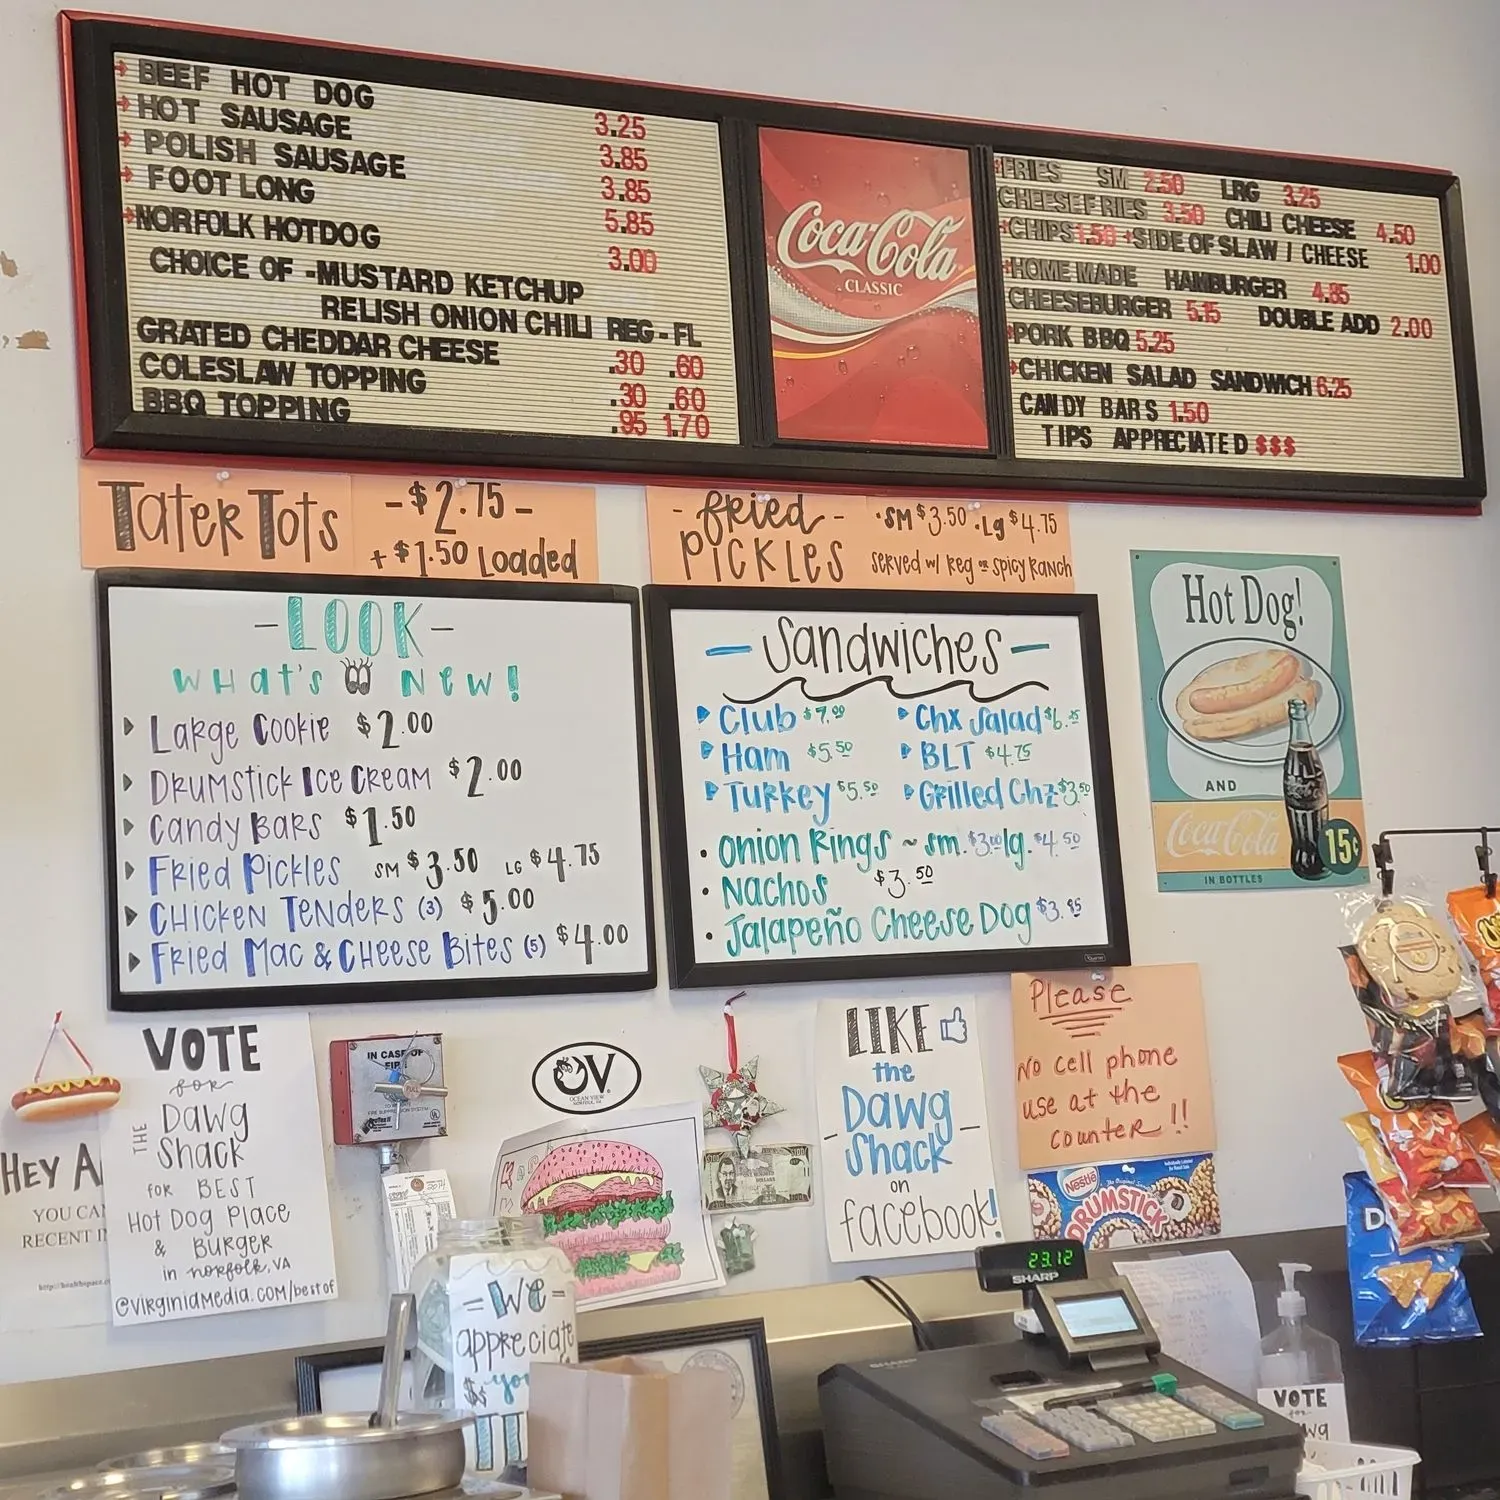 BEEF HOT DOG 3.25
HOT SAUSAGE 3.85
POLISH SAUSAGE 3.85
FOOT LONG 5.85
NORFOLK HOTDOG 3.00
CHOICE OF - MUSTARD KETCHUP
RELISH ONION CHILI REG - FL
GRATED CHEDDAR CHEESE .30 .60
COLESLAW TOPPING .30 .60
BBQ TOPPING .95 1.70
Coca-Cola
CLASSIC
FRIES SM 2.50 LRG 3.25
CHEESEFRIES 3.50 CHILI CHEESE 4.50
CHIPS 1.50 SIDE OF SLAW / CHEESE 1.00
HOME MADE HAMBURGER 4.85
CHEESEBURGER 5.15 DOUBLE ADD 2.00
PORK BBQ 5.25
CHICKEN SALAD SANDWICH 6.25
CANDY BARS 1.50
TIPS APPRECIATED $$$
Tater Tots
- $2.75 -
+ $1.50 Loaded
- fried -
PICKLES
• SM $3.50 • Lg $4.75
served w/ reg or spicy ranch
- LOOK -
what's new!
Large Cookie $2.00
Drumstick Ice Cream $2.00
Candy Bars $1.50
Fried Pickles SM $3.50 LG $4.75
Chicken Tenders (3) $5.00
Fried Mac & Cheese Bites (5) $4.00
- Sandwiches -
Club $7.00 Chx Salad $6.25
Ham $5.50 BLT $4.75
Turkey $5.50 Grilled Chz $3.50
• Onion Rings ~ sm. $3.00 lg. $4.50
• Nachos $3.50
• Jalapeño Cheese Dog $3.85
Hot Dog!
AND
Coca-Cola
15¢
IN BOTTLES
HEY A
YOU CA
RECENT I
VOTE
for
THE Dawg
Shack
for BEST
Hot Dog Place
& Burger
in norfolk, VA
@virginiamedia.com/bestof
IN CASE OF
FIRE
PULL
OV
OCEAN VIEW
NORFOLK, VA
LIKE
the
Dawg
- Shack -
on
facebook!
Please
No cell phone
use at the
counter!!
Nestle
DRUMSTICK
23.12
SHARP
SHARP
- We -
appreciate
$$ you
VOTE
for